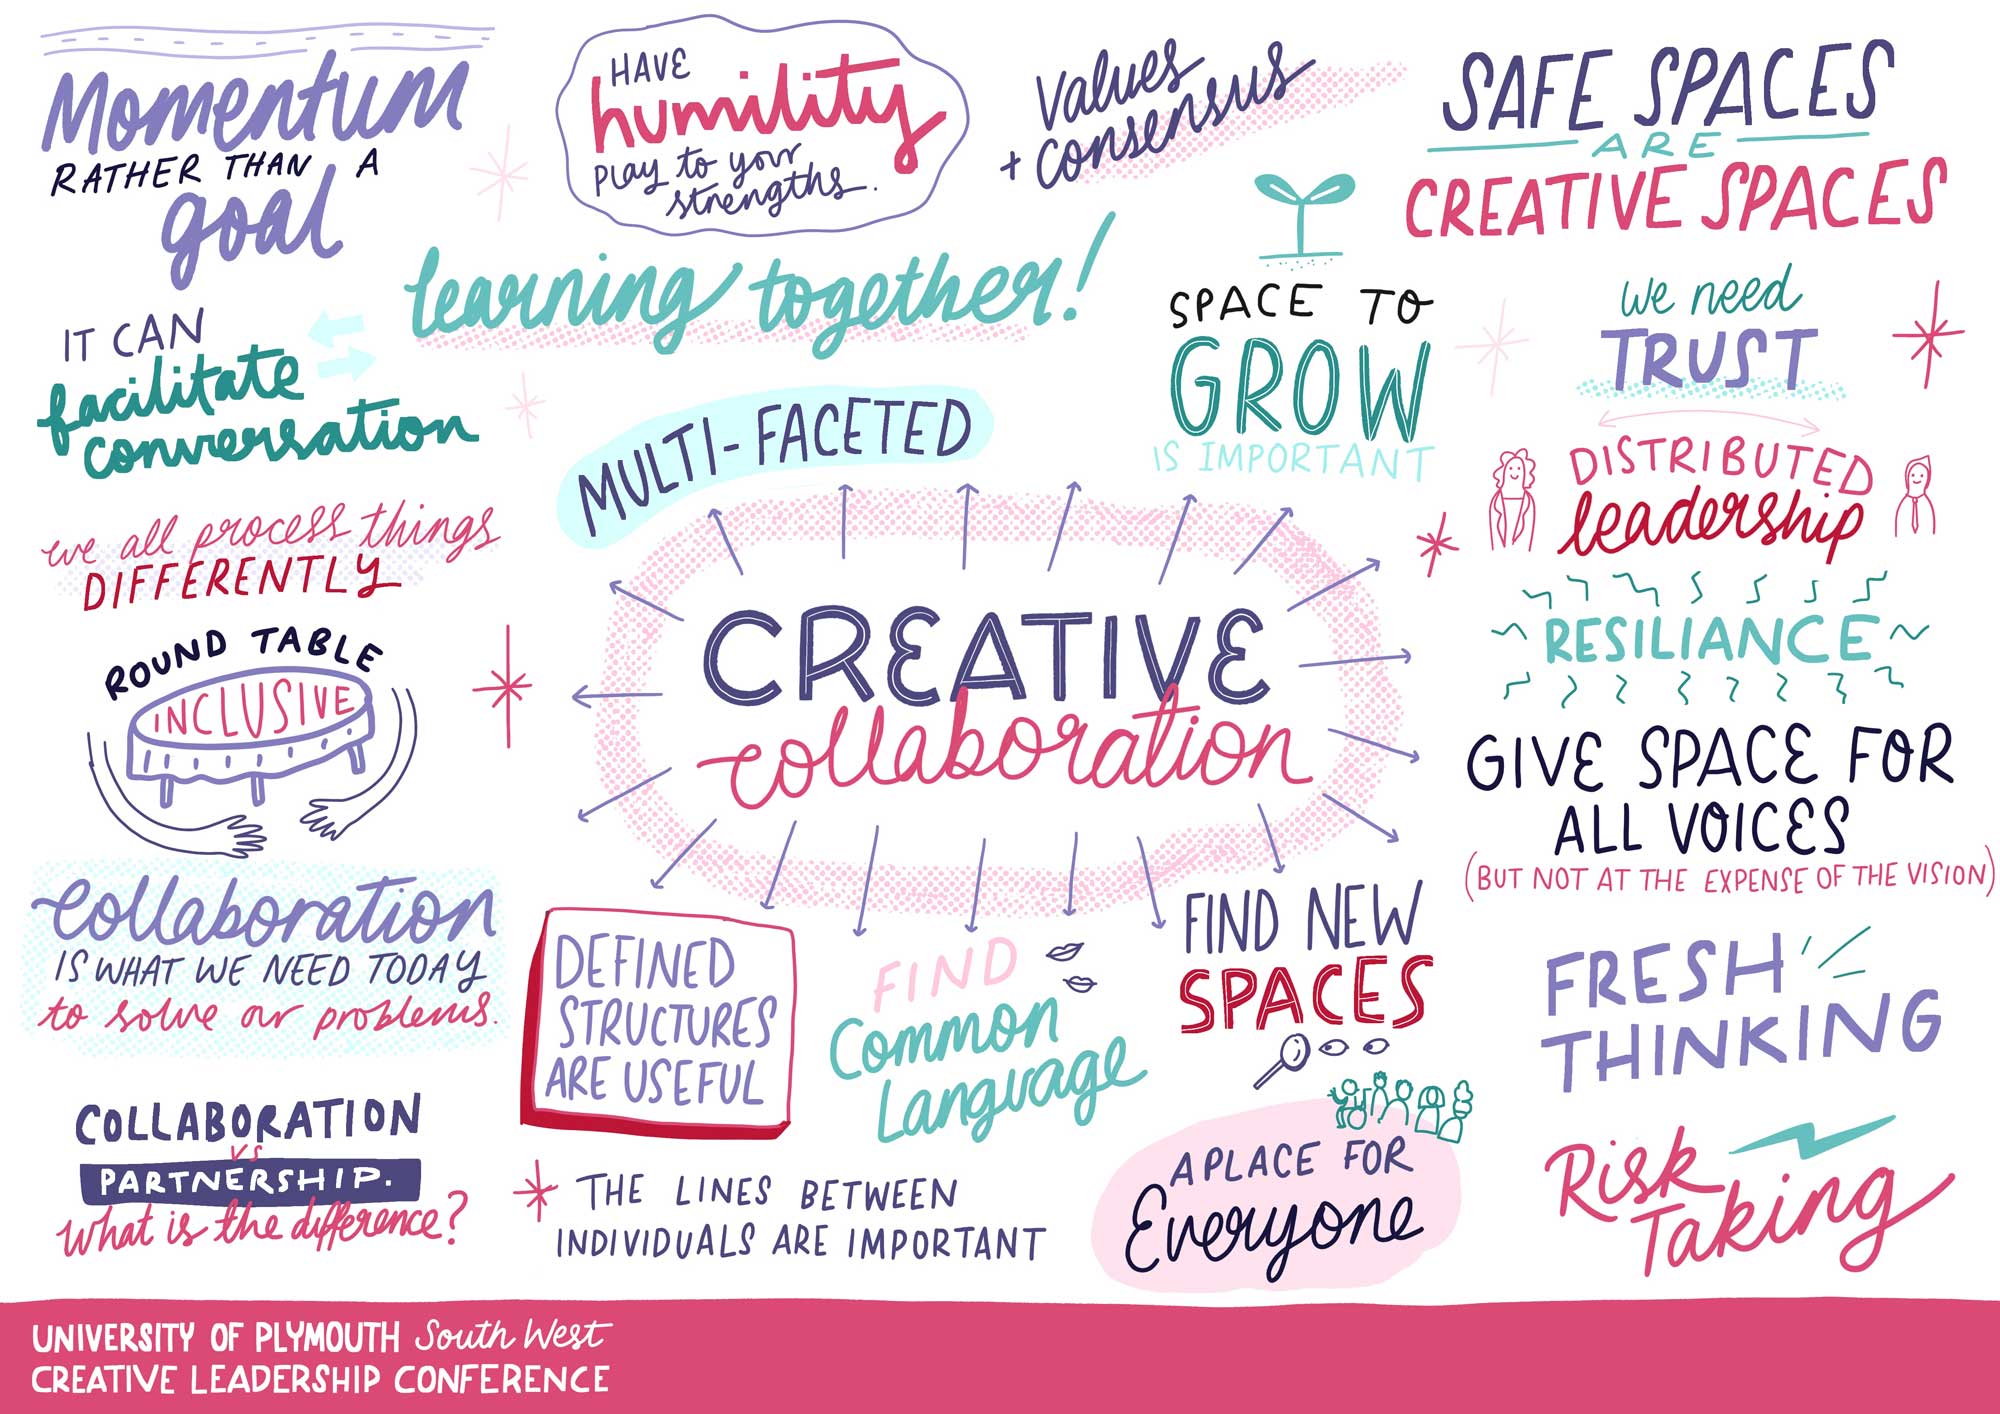 Momentum
RATHER THAN A
goal
HAVE
humility
play to your
strengths.
Values
+ consensus
SAFE SPACES
ARE
CREATIVE SPACES
learning together!
IT CAN
facilitate
conversation
SPACE TO
GROW
IS IMPORTANT
we need
TRUST
MULTI-FACETED
DISTRIBUTED
leadership
we all process things
DIFFERENTLY
CREATIVE
collaboration
RESILIANCE
ROUND TABLE
INCLUSIVE
GIVE SPACE FOR
ALL VOICES
(BUT NOT AT THE EXPENSE OF THE VISION)
Collaboration
IS WHAT WE NEED TODAY
to solve our problems.
DEFINED
STRUCTURES
ARE USEFUL
FIND
Common
Language
FIND NEW
SPACES
FRESH
THINKING
COLLABORATION
VS
PARTNERSHIP.
What is the difference?
THE LINES BETWEEN
INDIVIDUALS ARE IMPORTANT
A PLACE FOR
Everyone
Risk
Taking
UNIVERSITY OF PLYMOUTH South West
CREATIVE LEADERSHIP CONFERENCE